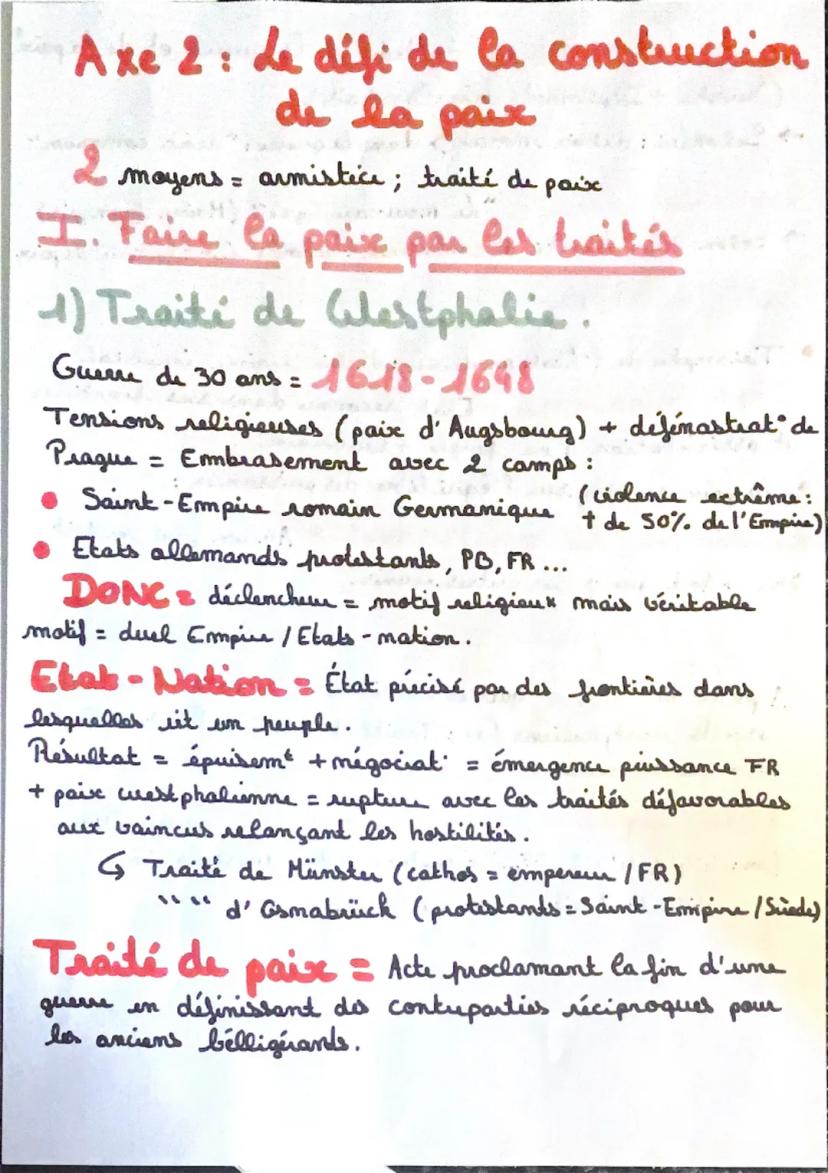 Axe 2 : Le défi de la construction
de la paix
2 moyens = armistice ; traité de paix
I. Faire la paix par les traités
1) Traité de Westphalie.
Guerre de 30 ans = 1618-1648
Tensions religieuses (paix d'Augsbourg) + défénastrat° de
Prague = Embrasement avec 2 camps :
• Saint-Empire romain Germanique (violence extrême :
+ de 50% de l'Empire)
• Etats allemands protestants, PB, FR ...
DONC = déclencheur = motif religieux mais véritable
motif = duel Empire / Etats-nation.
Etat-Nation = État précisé par des frontières dans
lesquelles vit un peuple.
Résultat = épuisemt + négociat° = émergence puissance FR
+ paix westphalienne = rupture avec les traités défavorables
aux vaincus relançant les hostilités.
↳ Traité de Münster (cathos = empereur / FR)
"" "" d'Osnabrück (protestants = Saint-Empire / Suède)
Traité de paix = Acte proclamant la fin d'une
guerre en définissant des contreparties réciproques pour
les anciens bélligérants.